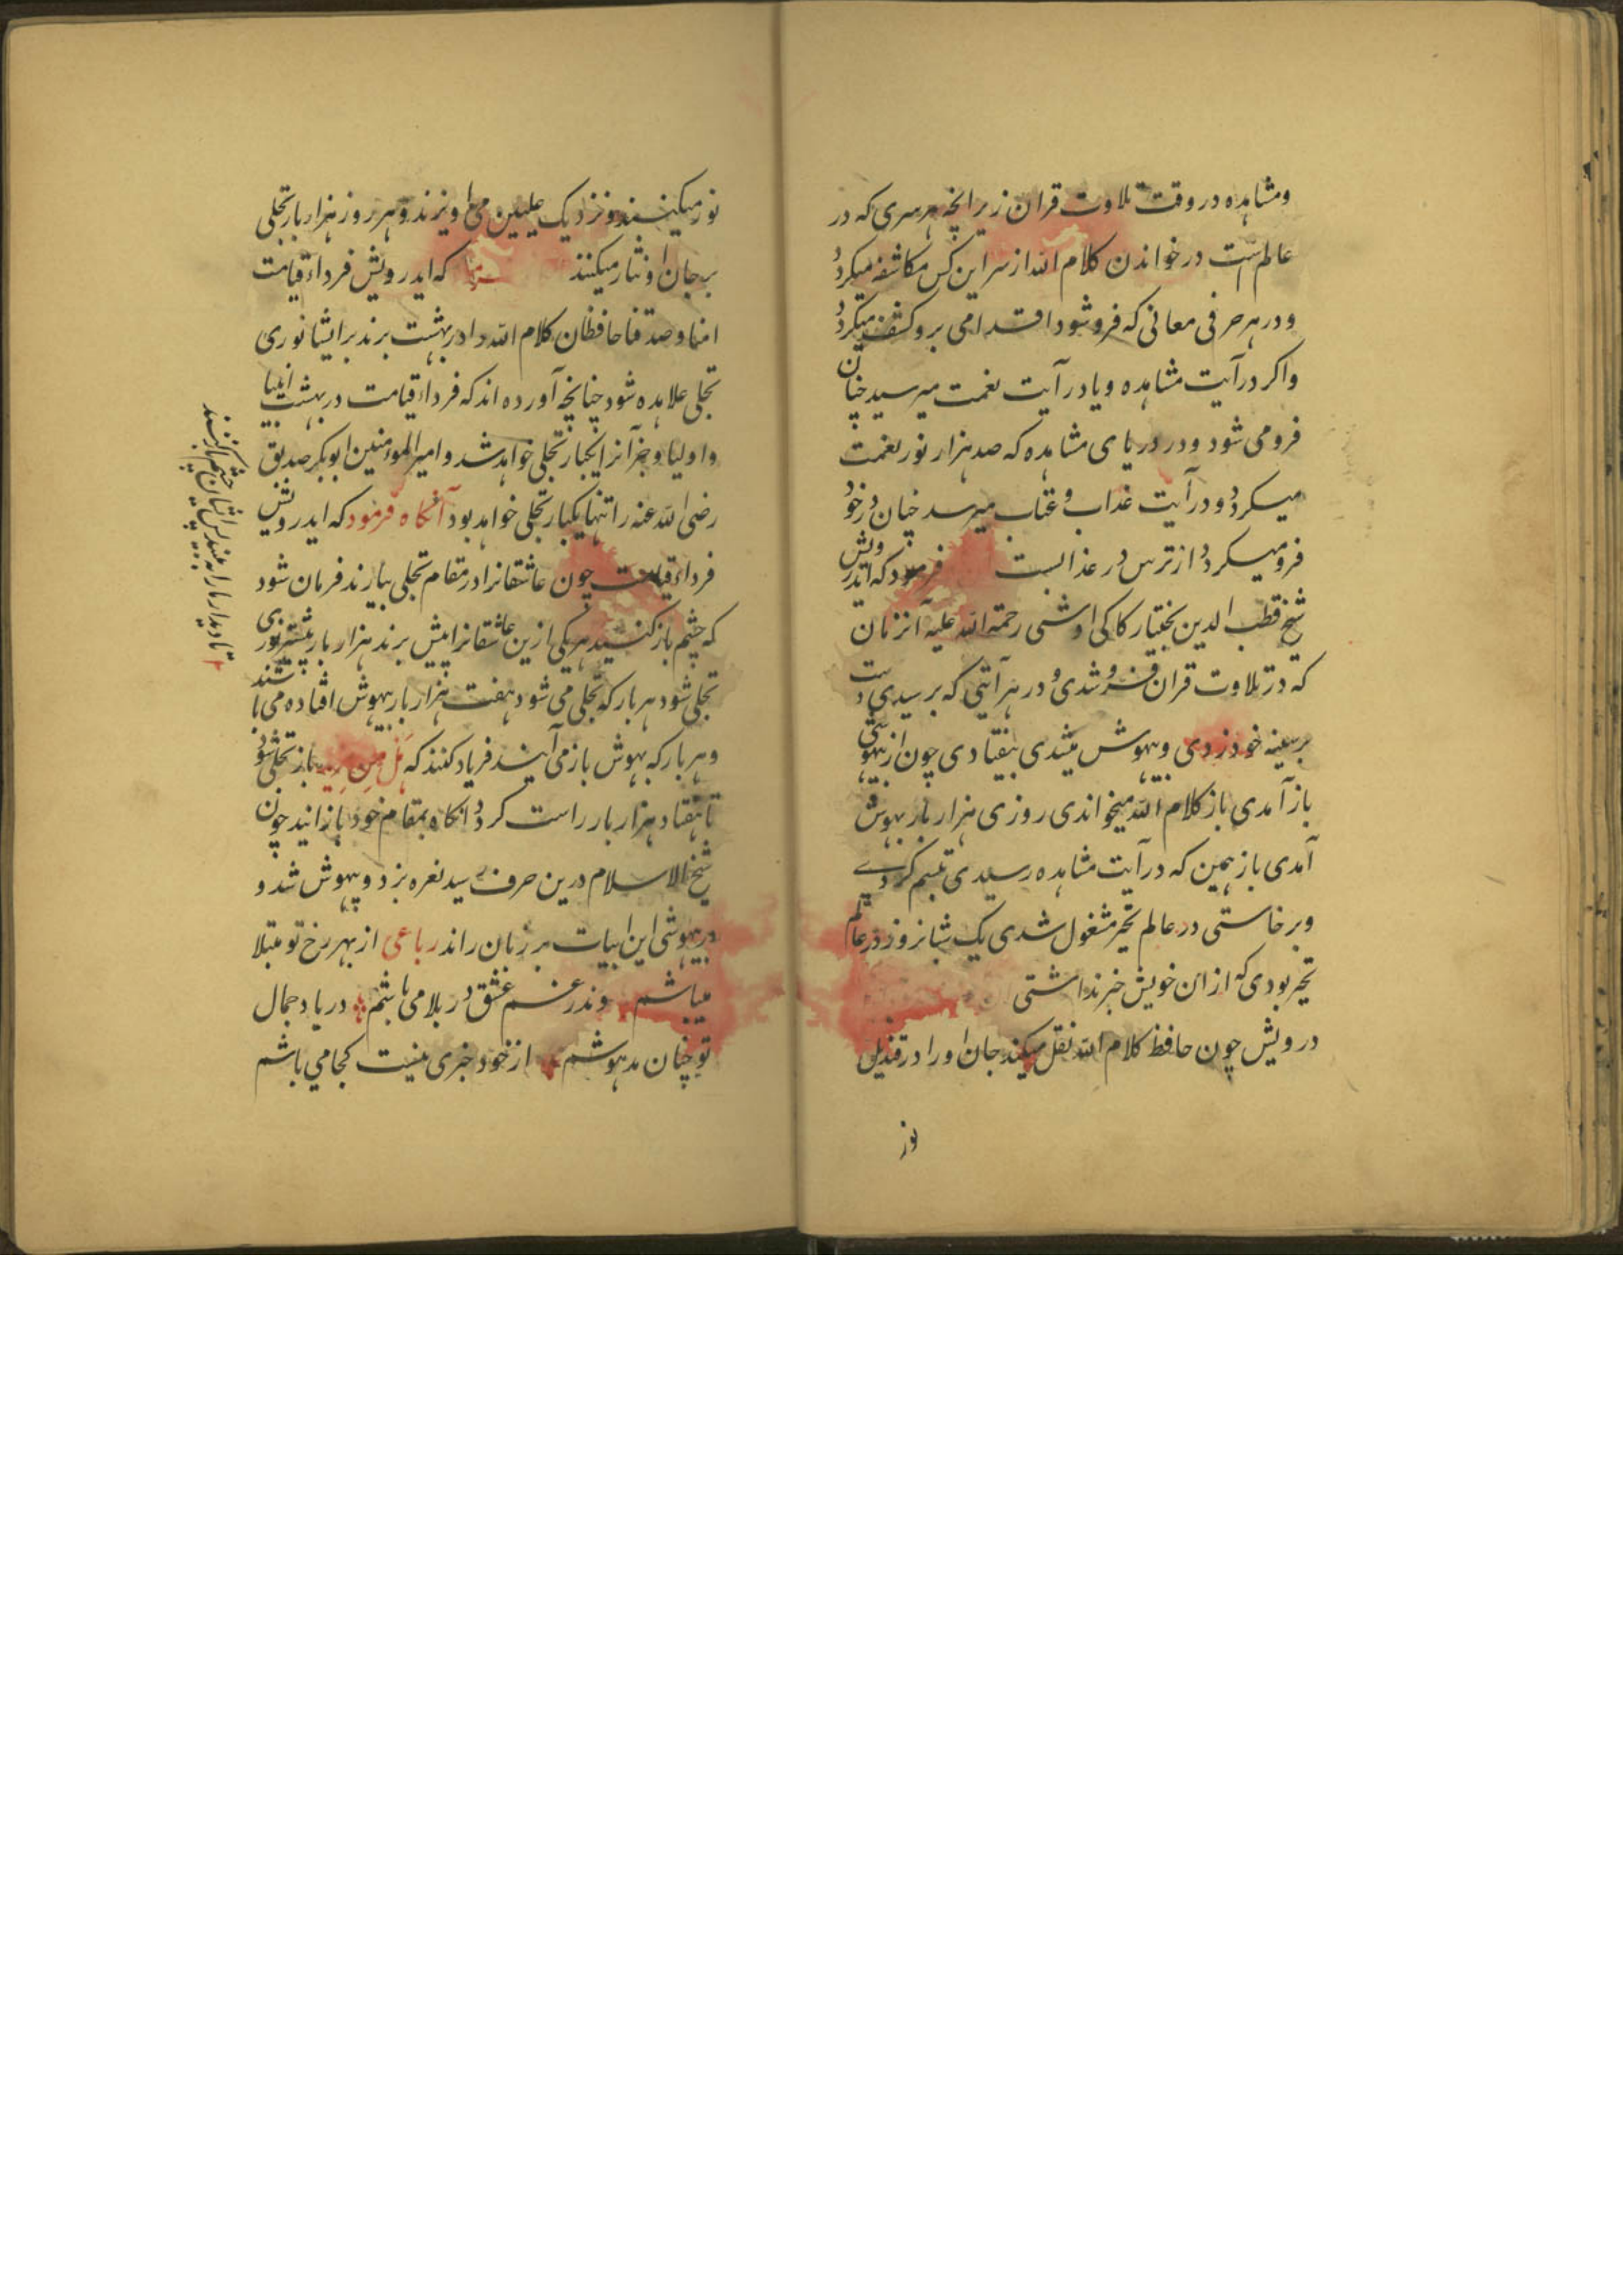 ومشاهده در وقت تلاوت قران زیرانچه هر سری که در
عالم است در خواندن کلام الله از سر این کس مکاشفه میکردد
ودر هر حرفی معانی که فرو شود اقدامی برو کشف میکردد
واکر در آیت مشاهده ویا در آیت نعمت میرسد چنان
فرو می شود ودر دریای مشاهده که صد هزار نور نعمت
میکردد ودر آیت عذاب وعتاب میرسد چنان در خود
فرو میکردد از ترس در عذابست فرمود که ایدرویش
شیخ قطب الدین بختیار کاکی اوشی رحمة الله علیه آنزمان
که در تلاوت قران فروشدی ودر هر آیتی که برسیدی دست
بر سینه خود زدی وبیهوش میشدی بیفتادی چون از بیهوشی
باز آمدی باز کلام الله میخواندی روزی هزار بار بیهوش
آمدی باز همین که در آیت مشاهده رسیدی تبسم کردے
وبرخاستی در عالم تحیر مشغول شدی یک شبانروز در عالم
تحیر بودی که از ان خویش خبر نداشتی
درویش چون حافظ کلام الله نقل میکند جان او را در قندیل
نور
نور میکنند ونزدیک علیین می اویزند وهر روز هزار بار تجلی
بر جان او نثار میکنند که ایدرویش فرداء قیامت
امنا وصدقنا حافظان کلام الله را در بهشت برند بر ایشا نوری
تجلی علا مده شود چنانچه آورده اند که فرداء قیامت در بهشت انبیا
واولیا وجز آنرا یکبار تجلی خواهد شد وامیر المومنین ابوبکر صدیق
رضی الله عنه را تنها یکبار تجلی خواهد بود آنکاه فرمود که ایدرویش
فرداء قیامت چون عاشقانرا در مقام تجلی بیارند فرمان شود
که چشم باز کنید هر یکی ازین عاشقانرا پیش برند هزار بار بیشتر نوری
تجلی شود هر بار که تجلی می شود هفت هزار بار بیهوش افتاده می باشند
وهر بار که بهوش باز می آیند فریاد کنند که هل من مزید باز تجلی شود
تا هفتاد هزار بار راست کردد انکاه بمقام خود باز ایند چون
شیخ الاسلام درین حرف رسید نعره بزد وبیهوش شد و
در بیهوشی این ابیات بر زبان راند رباعی از بهر رخ تو مبتلا
میباشم وندر غم عشق در بلا می باشم در یاد جمال
تو چنان مدهوشم از خود خبری نیست کجا می باشم
چشم باز نکنند
تا دیدار ما را نه بینند پس ایشان